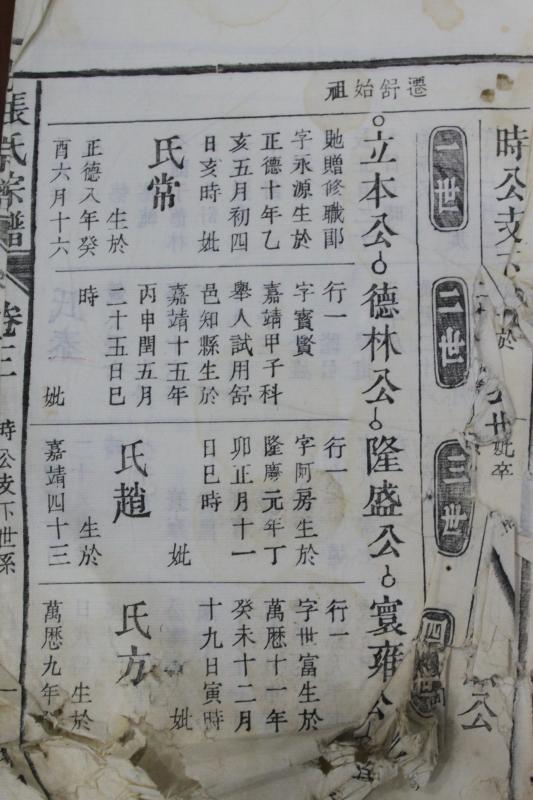 時公支下
公
妣卒
一世
二世
三世
四世
遷舒始祖
立本公
德林公
隆盛公
寰雍公
貤贈修職郎
字永源生於
正德十年乙
亥五月初四
日亥時 妣
氏常
生於
正德八年癸
酉六月十六
行一
字寳賢
嘉靖甲子科
舉人試用舒
邑知縣生於
嘉靖十五年
丙申閏五月
二十五日巳
時
妣
行一
字阿房生於
隆慶元年丁
卯正月十一
日巳時
妣
氏趙
生於
嘉靖四十三
行一
字世富生於
萬歷十一年
癸未十二月
十九日寅時
妣
氏方
生於
萬歷九年
張氏宗譜
卷三
時公支下世系
一